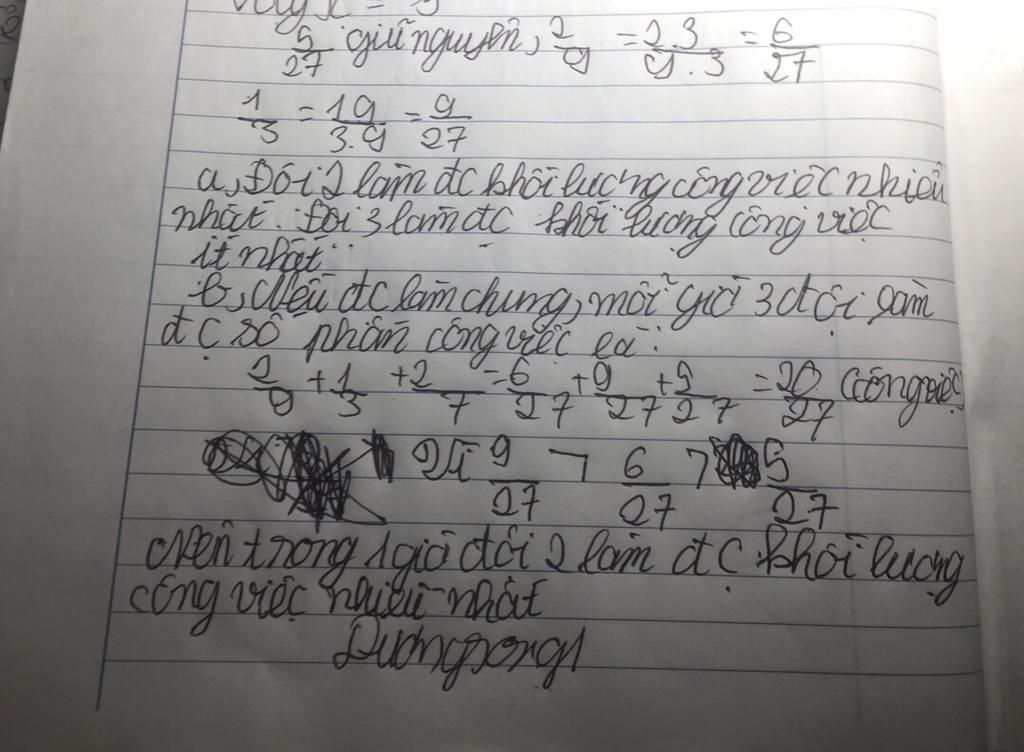 5/27 giữ nguyên, 2/9 = 2.3/9.3 = 6/27
1/3 = 19/3.9 = 9/27
a, Đội 2 làm đc khối lượng công việc nhiều
nhất. Đội 3 làm đc khối lượng công việc
ít nhất
b, Nếu đc làm chung, mỗi giờ 3 đội làm
đc số phần công việc là:
2/9 + 1/3 + 2/7 = 6/27 + 9/27 + 5/27 = 20/27 (công việc)
9/27 > 6/27 > 5/27
Nên trong 1 giờ đội 2 làm đc khối lượng
công việc nhiều nhất